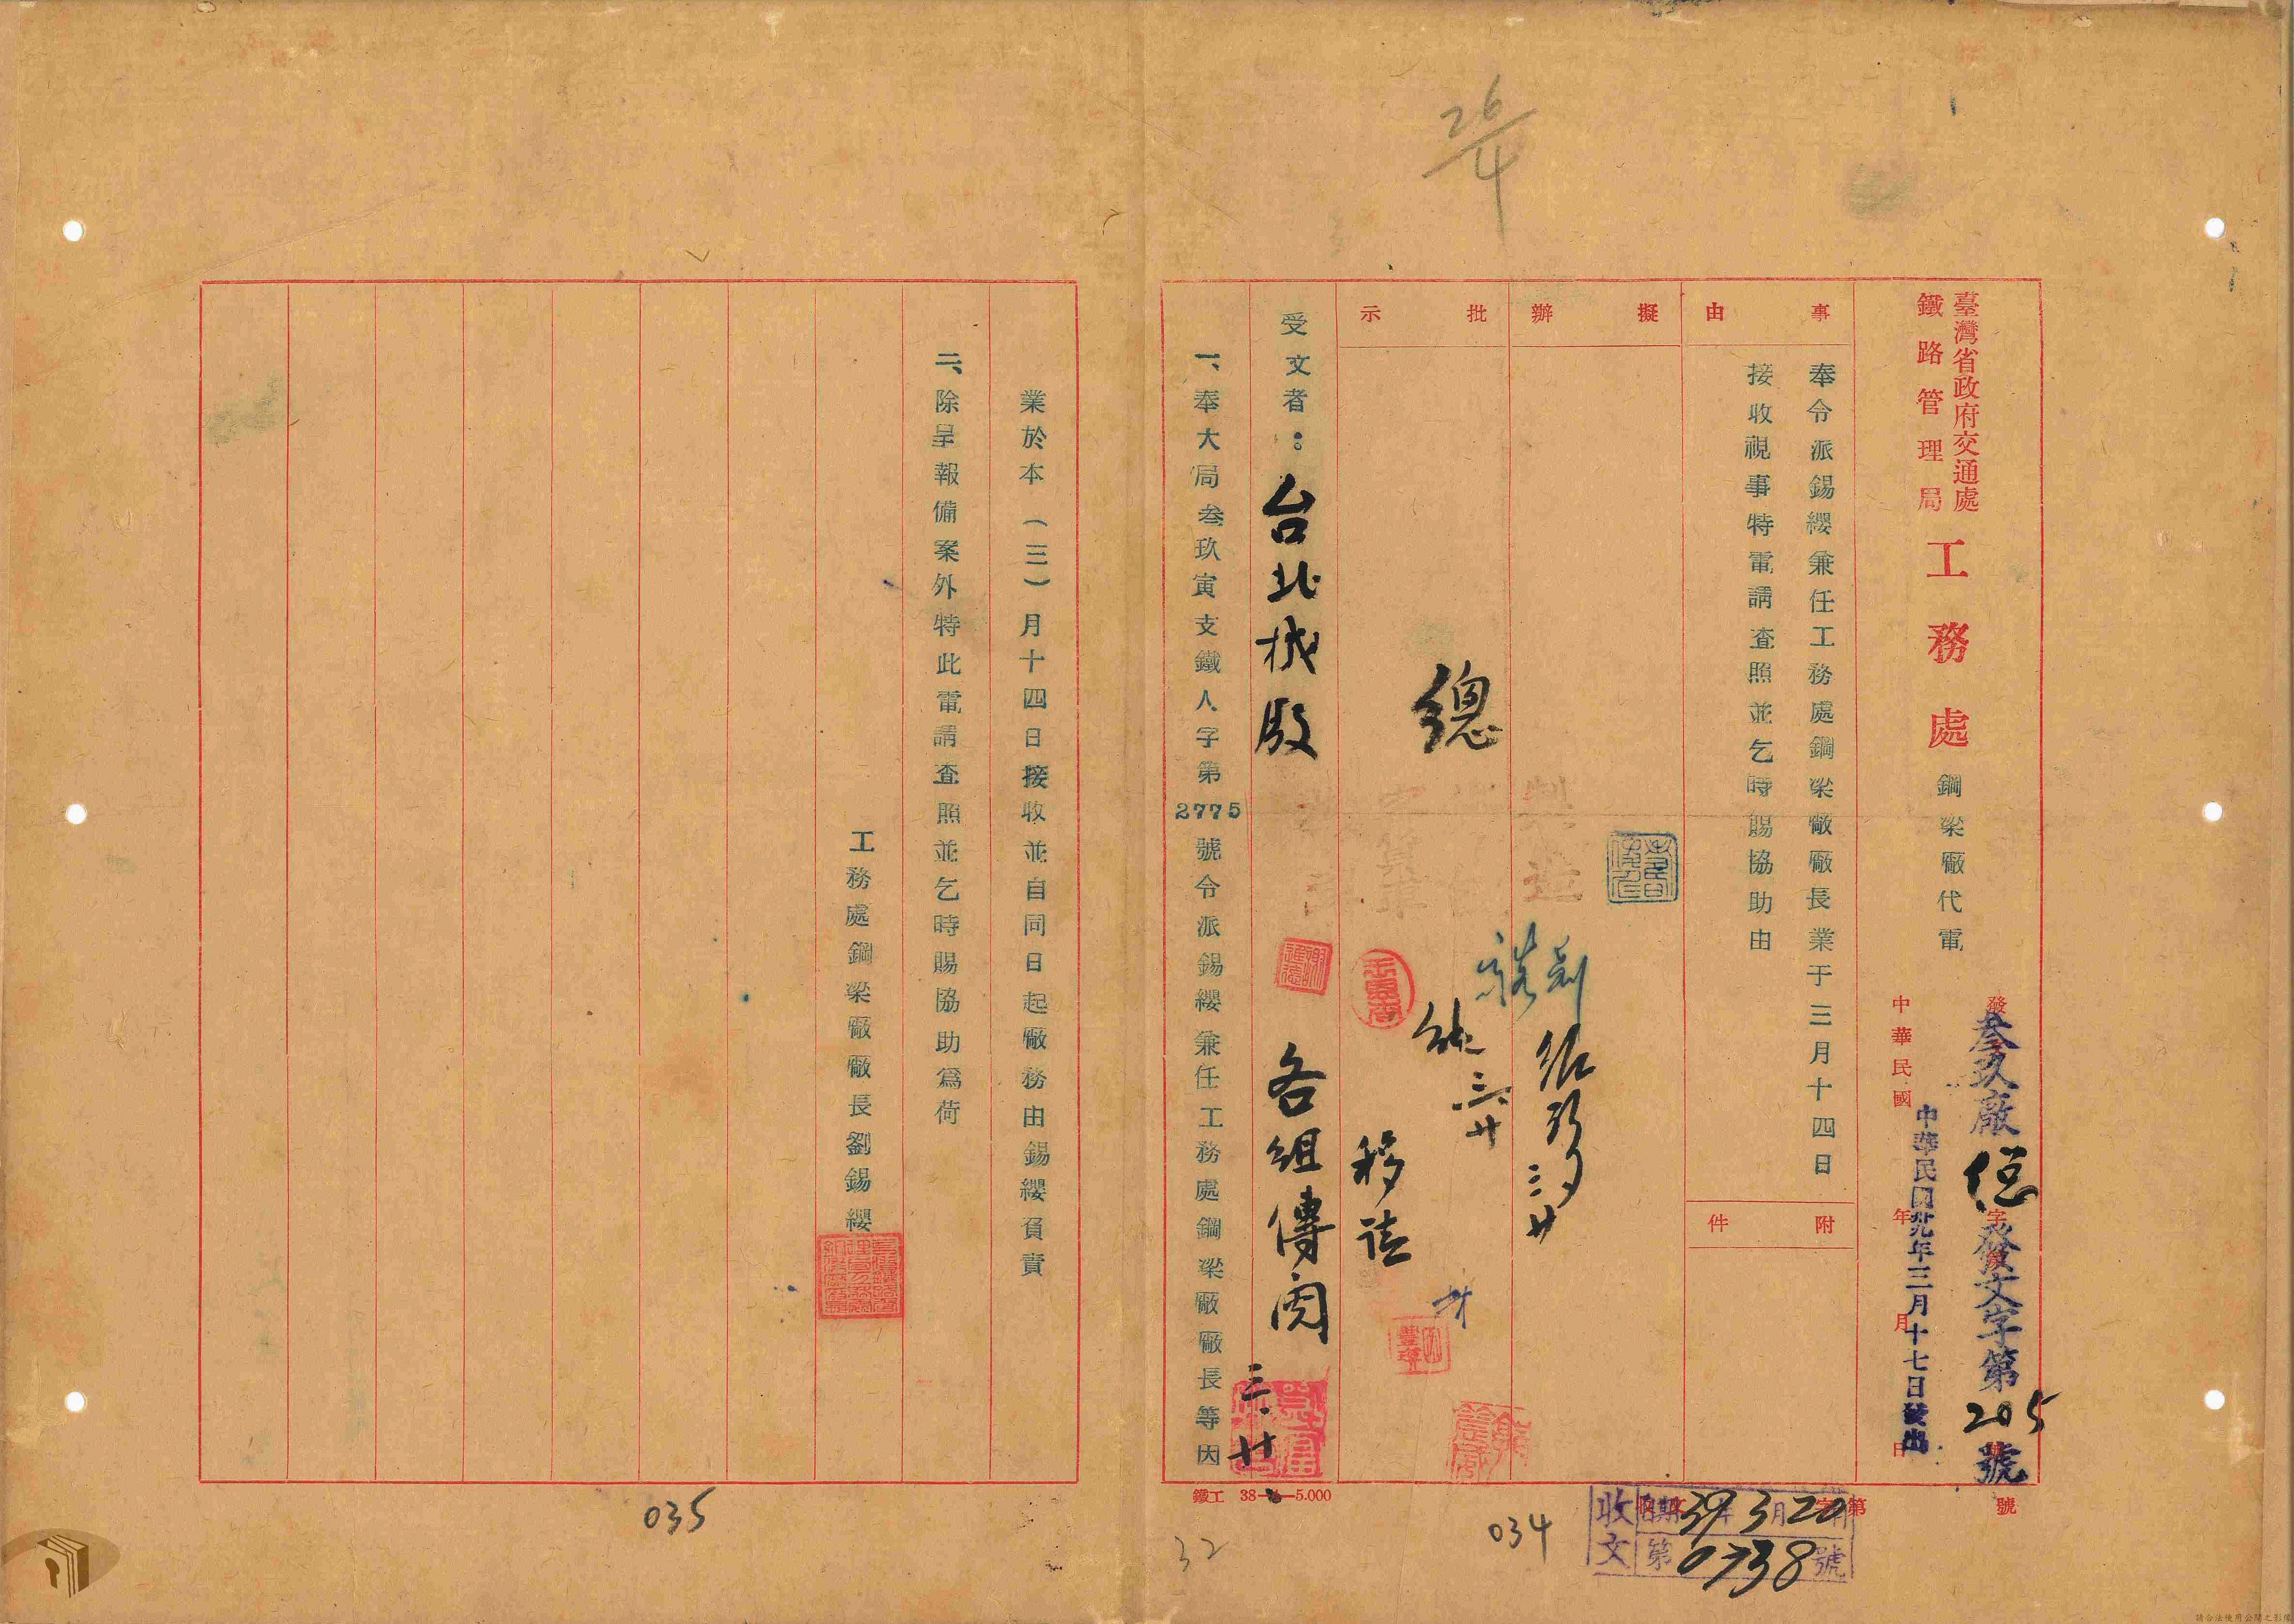 臺灣省政府交通處
鐵路管理局
工務處
鋼梁廠代電
發
叁玖廠總發文字第205號
字
號
中華民國
年
月
日
中華民國卅九年三月十七日發出
事由
奉令派錫纓兼任工務處鋼梁廠廠長業于三月十四日
接收視事特電請查照並乞時賜協助由
附件
擬辦
批示
總
移誌
受文者：台北機廠
各組傳閱
三.廿
一、奉大局叁玖寅支鐵人字第2775號令派錫纓兼任工務處鋼梁廠廠長等因
鐵工 38
5.000
業於本（三）月十四日接收並自同日起廠務由錫纓負責
二、除呈報備案外特此電請查照並乞時賜協助爲荷
工務處鋼梁廠廠長劉錫纓
收文
日期39年3月20日
第0738號
字第
號
26/4
034
32
035
請合法使用公開之影像